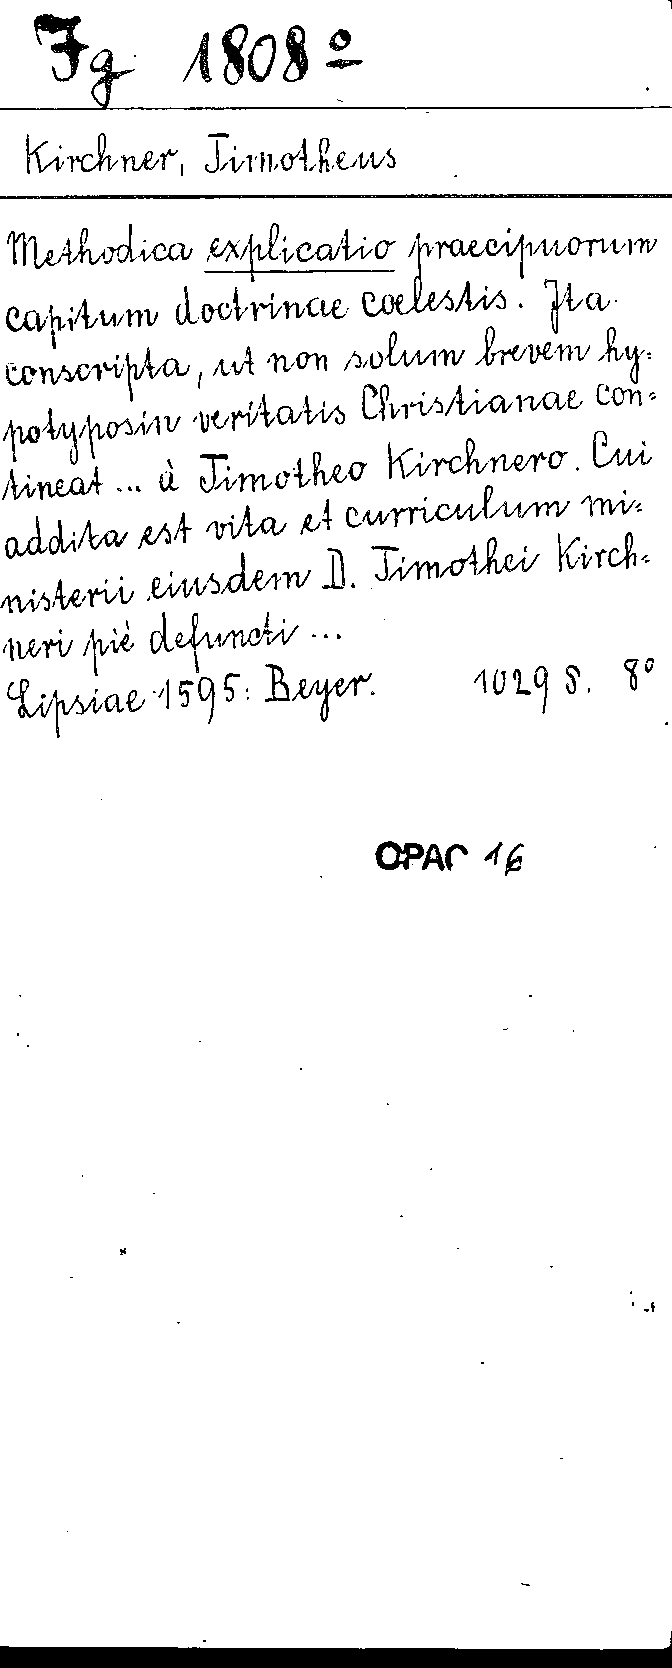 Fg 1808º
Kirchner, Timotheus
Methodica explicatio praecipuorum
capitum doctrinae coelestis. Ita
conscripta, ut non solum brevem hy=
potyposin veritatis Christianae con=
tineat ... à Timotheo Kirchnero. Cui
addita est vita et curriculum mi=
nisterii eiusdem D. Timothei Kirch=
neri piè defuncti ...
Lipsiae 1595: Beyer. 1029 S. 8°
OPAC 16